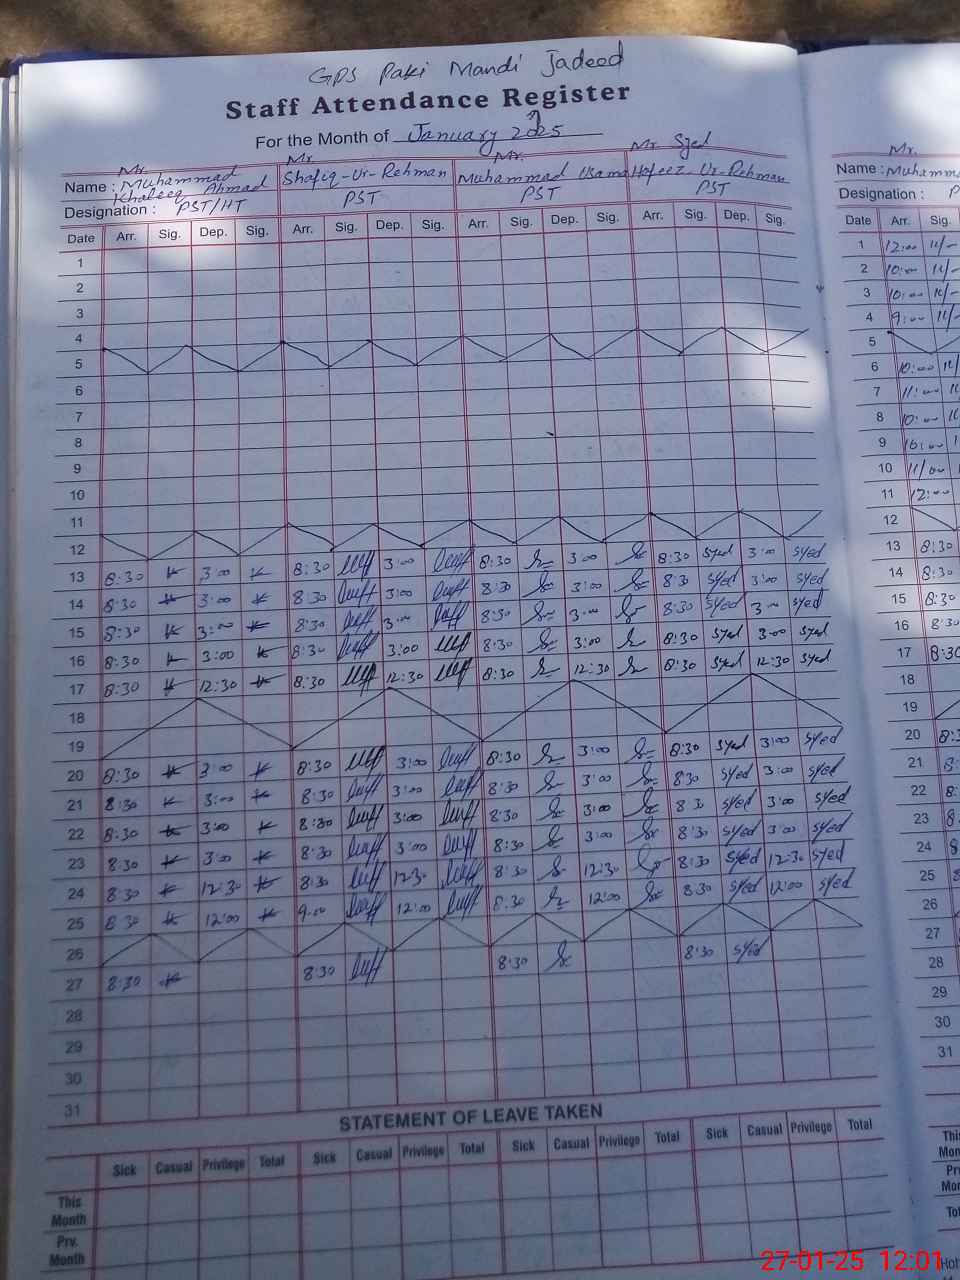 GPS Paki Mandi Jadeed
Staff Attendance Register
For the Month of January 2025
Mr. Mr. Mr. Mr. Syed Mr.
Name : Muhammad Khaleeq Ahmad Shafiq-Ur-Rehman Muhammad Usama Hafeez-Ur-Rehman Name : Muhamma
Designation : PST/HT PST PST PST Designation : P
Date Arr. Sig. Dep. Sig. Arr. Sig. Dep. Sig. Arr. Sig. Dep. Sig. Arr. Sig. Dep. Sig. Date Arr. Sig.
1 1 12:00
2 2 10:00
3 3 10:00
4 4 9:00
5 5
6 6 10:00
7 7 11:00
8 8 10:00
9 9 10:00
10 10 11/00
11 11 12:00
12 12
13 8:30 3:00 8:30 3:00 8:30 3:00 8:30 syed 3:00 syed 13 8:30
14 8:30 3:00 8:30 3:00 8:30 3:00 8:30 syed 3:00 syed 14 8:30
15 8:30 3:00 8:30 3:00 8:30 3:00 8:30 syed 3:00 syed 15 8:30
16 8:30 3:00 8:30 3:00 8:30 3:00 8:30 syed 3:00 syed 16 8:30
17 8:30 12:30 8:30 12:30 8:30 12:30 8:30 syed 12:30 syed 17 8:30
18 18
19 19
20 8:30 3:00 8:30 3:00 8:30 3:00 8:30 syed 3:00 syed 20 8:3
21 8:30 3:00 8:30 3:00 8:30 3:00 8:30 syed 3:00 syed 21 8:
22 8:30 3:00 8:30 3:00 8:30 3:00 8:30 syed 3:00 syed 22 8:
23 8:30 3:00 8:30 3:00 8:30 3:00 8:30 syed 3:00 syed 23 8
24 8:30 12:30 8:30 12:30 8:30 12:30 8:30 syed 12:30 syed 24 8
25 8:30 12:00 9:00 12:00 8:30 12:00 8:30 syed 12:00 syed 25 8
26 26
27 8:30 8:30 8:30 8:30 syed 27
28 28
29 29
30 30
31 31
STATEMENT OF LEAVE TAKEN
Sick Casual Privilege Total Sick Casual Privilege Total Sick Casual Privilege Total Sick Casual Privilege Total
This Month
Prv. Month
27-01-25 12:01